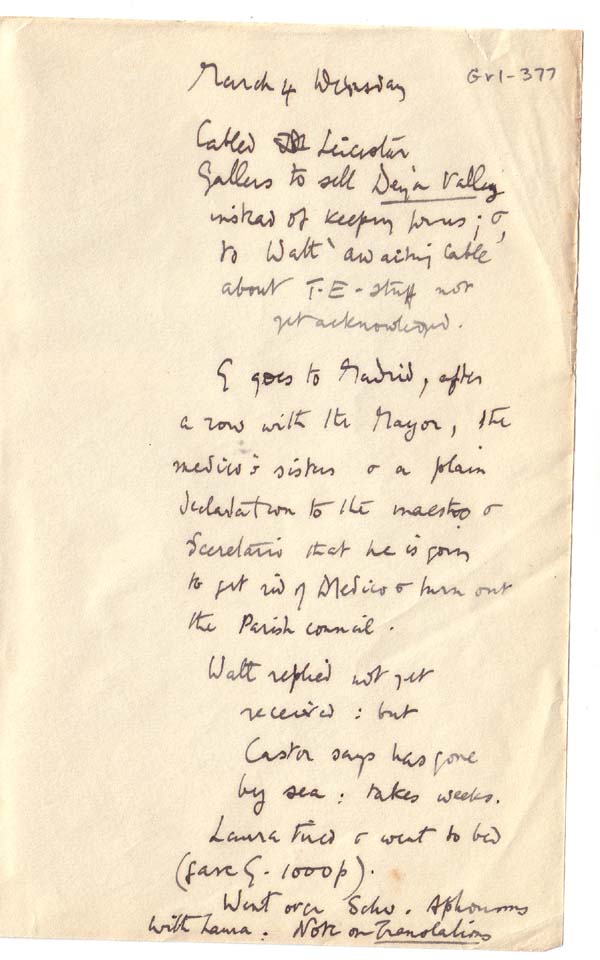 Gr1-377
March 4 Wednsday
Cabled Leicester
Gallers to sell Deya Valley
instead of keeping forms; &
to Watt 'awaiting cable'
about T-E-stuff not
yet acknowledged.
G goes to Madrid, after
a row with the Mayor, the
medico's sister & a plain
declaration to the maestro &
Secretario that he is going
to get rid of Medico & turn out
the Parish council.
Watt replied not yet
received : but
Castor says has gone
by sea : takes weeks.
Laura tired & went to bed
(gave G. 1000p).
Went over Scho. Aphorisms
with Laura. Note on Translations